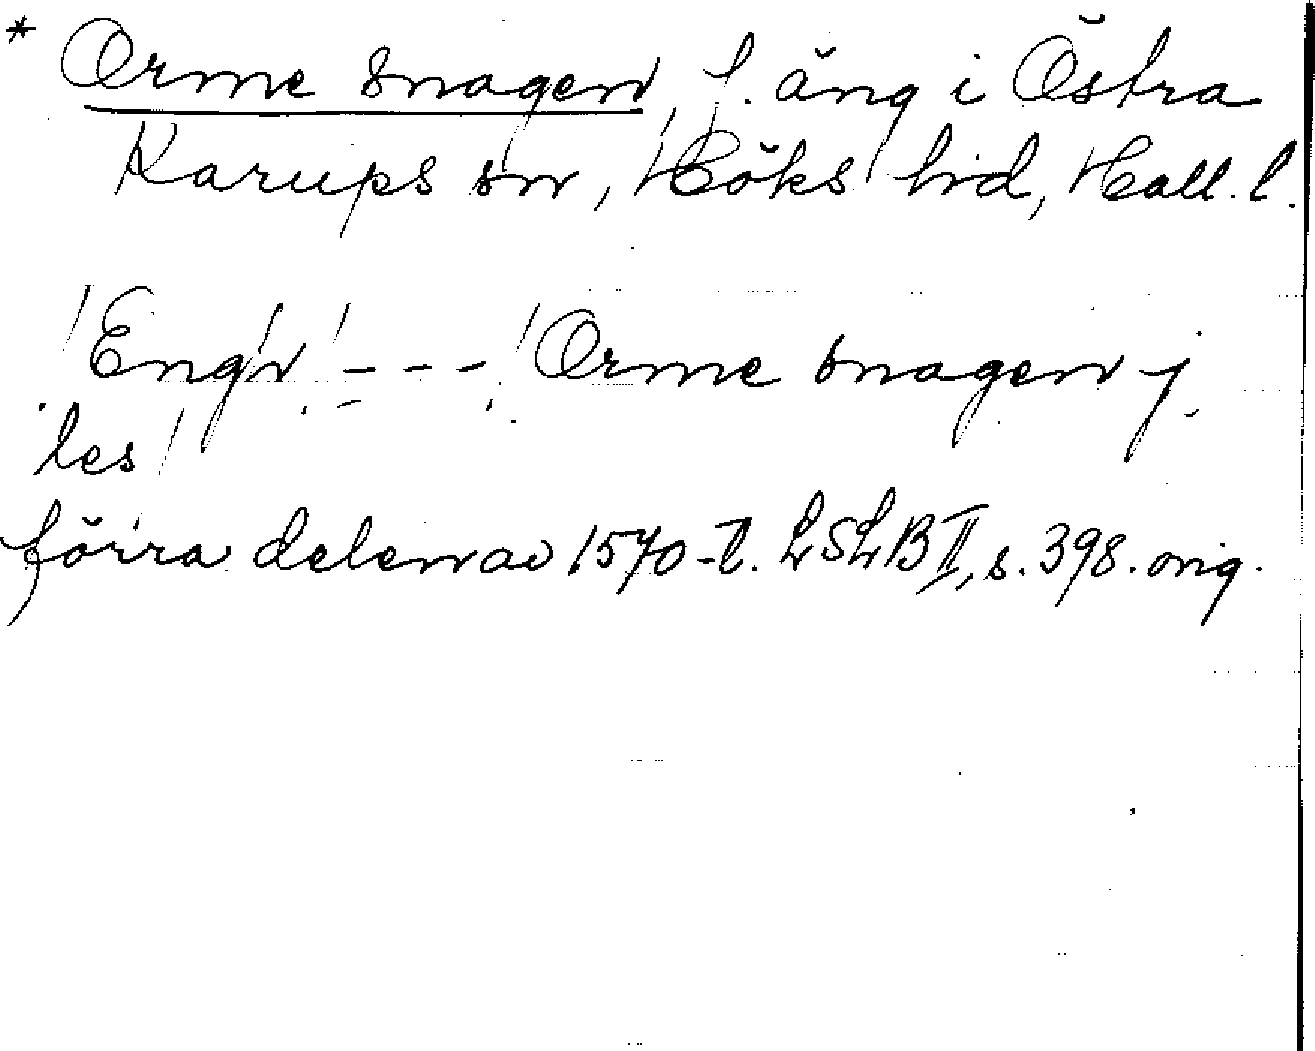 * Orme snagen, f. äng i Östra
Karups sn, Höks hd, Hall. l.
Engn --- Orme snagen j
les
förra delen av 1570-t. LSLB II, s. 398. orig.